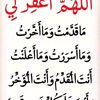 اللَّهُمَّ اغْفِرْ لِي
مَا قَدَّمْتُ وَمَا أَخَّرْتُ
وَمَا أَسْرَرْتُ وَمَا أَعْلَنْتُ
أَنْتَ الْمُقَدِّمُ وَأَنْتَ الْمُؤَخِّرُ